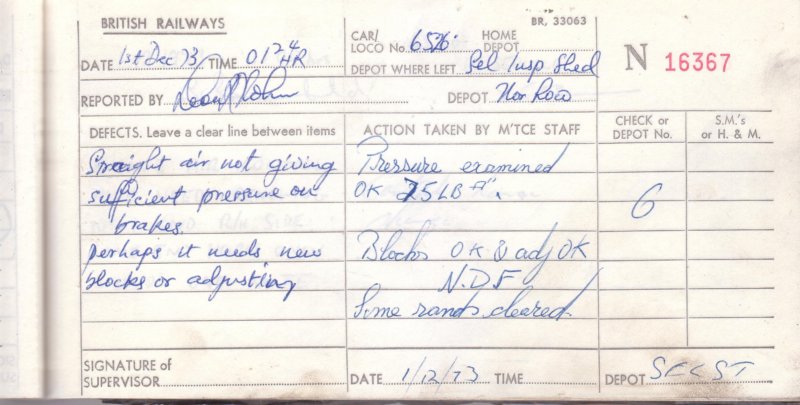 BRITISH RAILWAYS
BR, 33063
DATE 1st Dec 73 TIME 0124 HR
CAR/ LOCO No. 6526 HOME DEPOT
N 16367
DEPOT WHERE LEFT Sel Insp Shed
REPORTED BY
DEPOT Nor Row
DEFECTS. Leave a clear line between items
ACTION TAKEN BY M'TCE STAFF
CHECK or DEPOT No.
S.M.'s or H. & M.
Straight air not giving
sufficient pressure on
brakes.
perhaps it needs new
blocks or adjusting
Pressure examined
OK 75 LB □".
6
Blocks OK & adj OK
N.D.F
Some cleared.
SIGNATURE of SUPERVISOR
DATE 1/12/73 TIME
DEPOT SELST